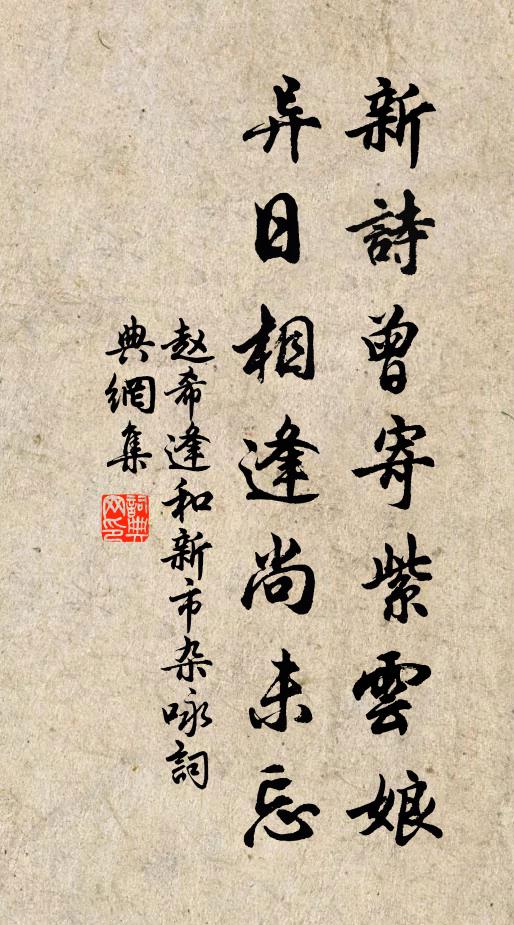 新詩曾寄紫雲娘
异日相逢尚未忘
赵希逢和新市杂咏詞
典網集
詞典网印